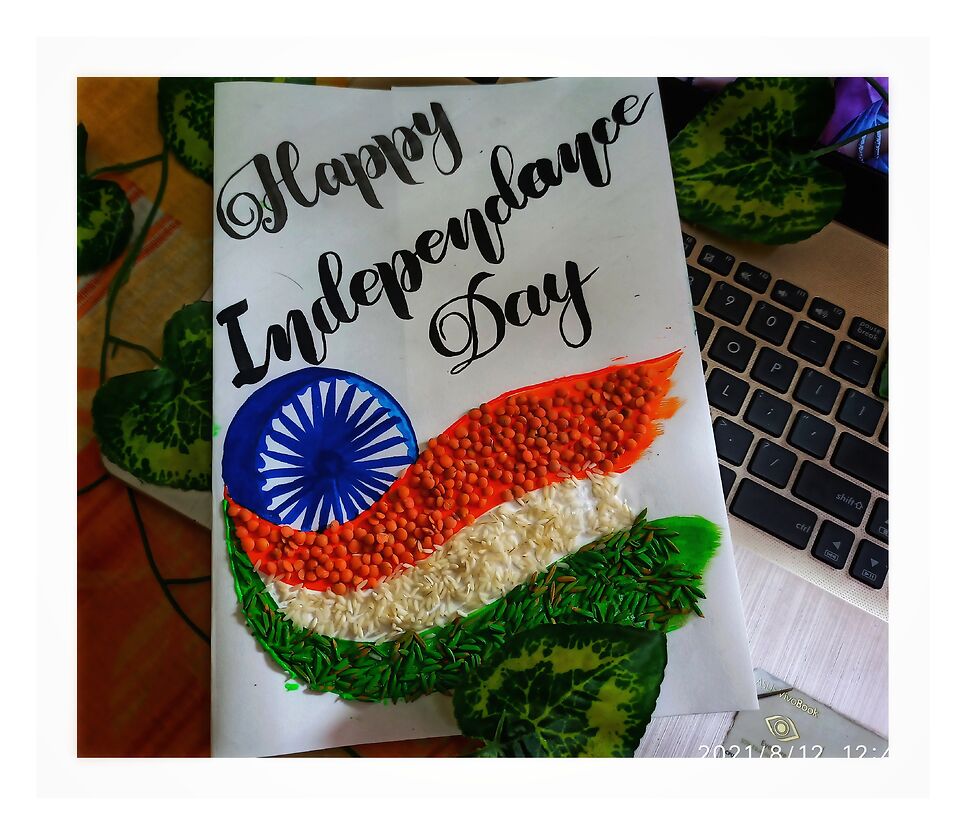 Happy
Independance
Day
pause
break
9
0
-
=
O
P
[
]
L
;
'
>
.
?
/
shift
ctrl
ASUS VivoBook
2021/8/12 12:4